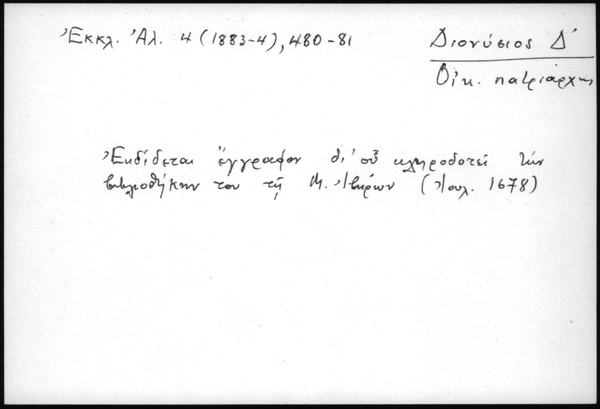 Ἐκκλ. Ἀλ. 4 (1883-4), 480-81
Διονύσιος Δ΄
Οἰκ. πατριάρχης
Ἐκδίδεται ἔγγραφον δι' οὗ κληροδοτεῖ τὴν
βιβλιοθήκην του τῇ Μ. Ἰβήρων (Ἰουλ. 1678)